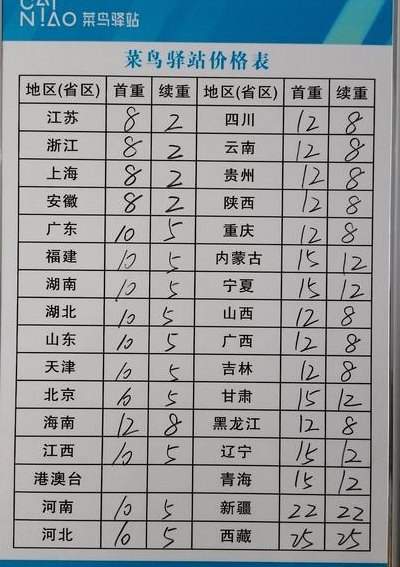 CAI
NIAO 菜鸟驿站
菜鸟驿站价格表
地区(省区) 首重 续重 地区(省区) 首重 续重
江苏 8 2 四川 12 8
浙江 8 2 云南 12 8
上海 8 2 贵州 12 8
安徽 8 2 陕西 12 8
广东 10 5 重庆 12 8
福建 10 5 内蒙古 15 12
湖南 10 5 宁夏 15 12
湖北 10 5 山西 12 8
山东 10 5 广西 12 8
天津 10 5 吉林 12 8
北京 10 5 甘肃 15 12
海南 12 8 黑龙江 12 8
江西 10 5 辽宁 15 12
港澳台 青海 15 12
河南 10 5 新疆 22 22
河北 10 5 西藏 25 25